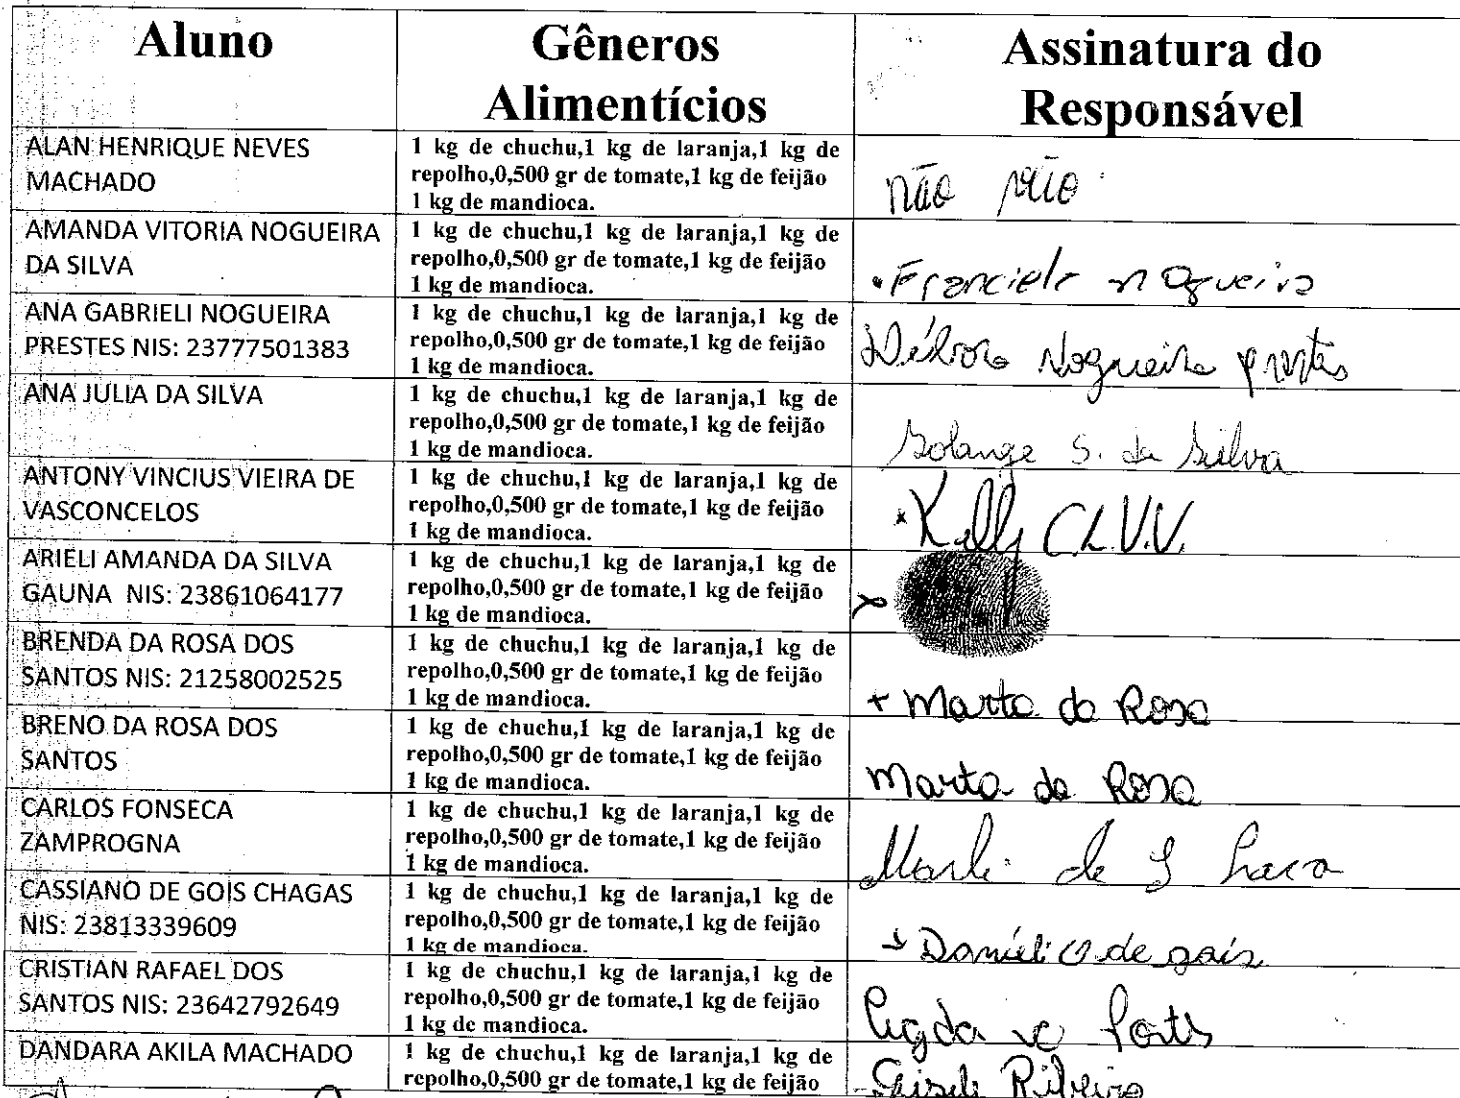 Aluno
Gêneros
Alimentícios
Assinatura do
Responsável
ALAN HENRIQUE NEVES
MACHADO
1 kg de chuchu,1 kg de laranja,1 kg de
repolho,0,500 gr de tomate,1 kg de feijão
1 kg de mandioca.
não
AMANDA VITORIA NOGUEIRA
DA SILVA
1 kg de chuchu,1 kg de laranja,1 kg de
repolho,0,500 gr de tomate,1 kg de feijão
1 kg de mandioca.
Franciele nogueira
ANA GABRIELI NOGUEIRA
PRESTES NIS: 23777501383
1 kg de chuchu,1 kg de laranja,1 kg de
repolho,0,500 gr de tomate,1 kg de feijão
1 kg de mandioca.
Débora Nogueira prestes
ANA JULIA DA SILVA
1 kg de chuchu,1 kg de laranja,1 kg de
repolho,0,500 gr de tomate,1 kg de feijão
1 kg de mandioca.
Solange S. da Silva
ANTONY VINCIUS VIEIRA DE
VASCONCELOS
1 kg de chuchu,1 kg de laranja,1 kg de
repolho,0,500 gr de tomate,1 kg de feijão
1 kg de mandioca.
x Kelly C.L.V.V.
ARIELI AMANDA DA SILVA
GAUNA NIS: 23861064177
1 kg de chuchu,1 kg de laranja,1 kg de
repolho,0,500 gr de tomate,1 kg de feijão
1 kg de mandioca.
x
BRENDA DA ROSA DOS
SANTOS NIS: 21258002525
1 kg de chuchu,1 kg de laranja,1 kg de
repolho,0,500 gr de tomate,1 kg de feijão
1 kg de mandioca.
+ Marta da Rosa
BRENO DA ROSA DOS
SANTOS
1 kg de chuchu,1 kg de laranja,1 kg de
repolho,0,500 gr de tomate,1 kg de feijão
1 kg de mandioca.
Marta da Rosa
CARLOS FONSECA
ZAMPROGNA
1 kg de chuchu,1 kg de laranja,1 kg de
repolho,0,500 gr de tomate,1 kg de feijão
1 kg de mandioca.
Marli de
CASSIANO DE GOIS CHAGAS
NIS: 23813339609
1 kg de chuchu,1 kg de laranja,1 kg de
repolho,0,500 gr de tomate,1 kg de feijão
1 kg de mandioca.
Danieli de gois
CRISTIAN RAFAEL DOS
SANTOS NIS: 23642792649
1 kg de chuchu,1 kg de laranja,1 kg de
repolho,0,500 gr de tomate,1 kg de feijão
1 kg de mandioca.
DANDARA AKILA MACHADO
1 kg de chuchu,1 kg de laranja,1 kg de
repolho,0,500 gr de tomate,1 kg de feijão
Gisele Ribeiro